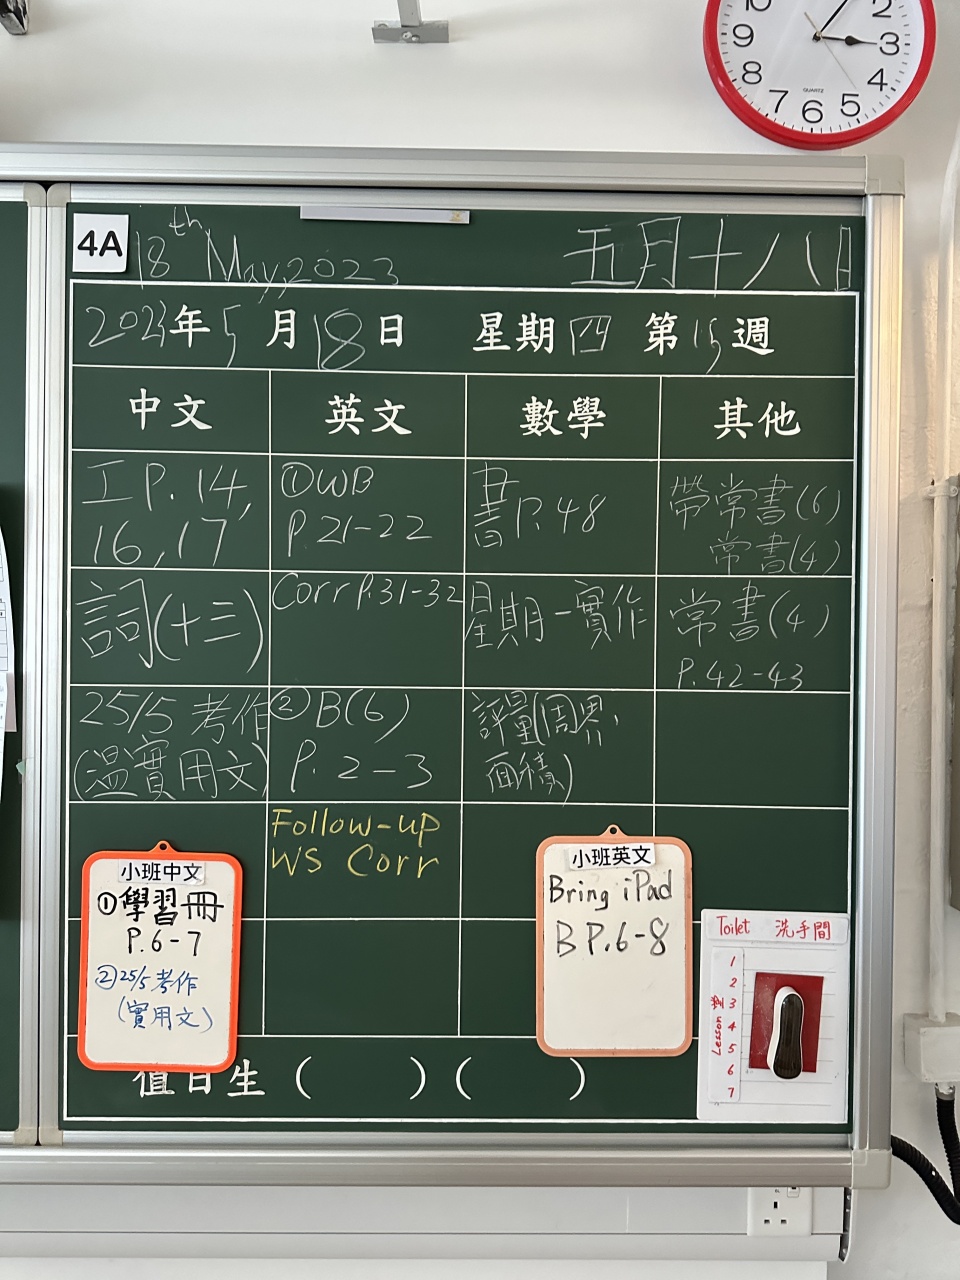 10
2
9
3
8
4
7
6
5
QUARTZ
4A
18th May, 2023
五月十八日
2023年5月18日 星期四 第15週
中文
英文
數學
其他
工P.14,
16,17
①WB
P.21-22
書P.48
帶常書(6)
常書(4)
詞(十三)
Corr P.31-32
星期一實作
常書(4)
P.42-43
25/5 考作
(溫實用文)
②B(6)
P.2-3
評量(周界,
面積)
Follow-up
WS Corr
小班中文
①學習冊
P.6-7
②25/5考作
(實用文)
小班英文
Bring iPad
B P.6-8
Toilet 洗手間
Lesson 堂
1
2
3
4
5
6
7
值日生 ( ) ( )